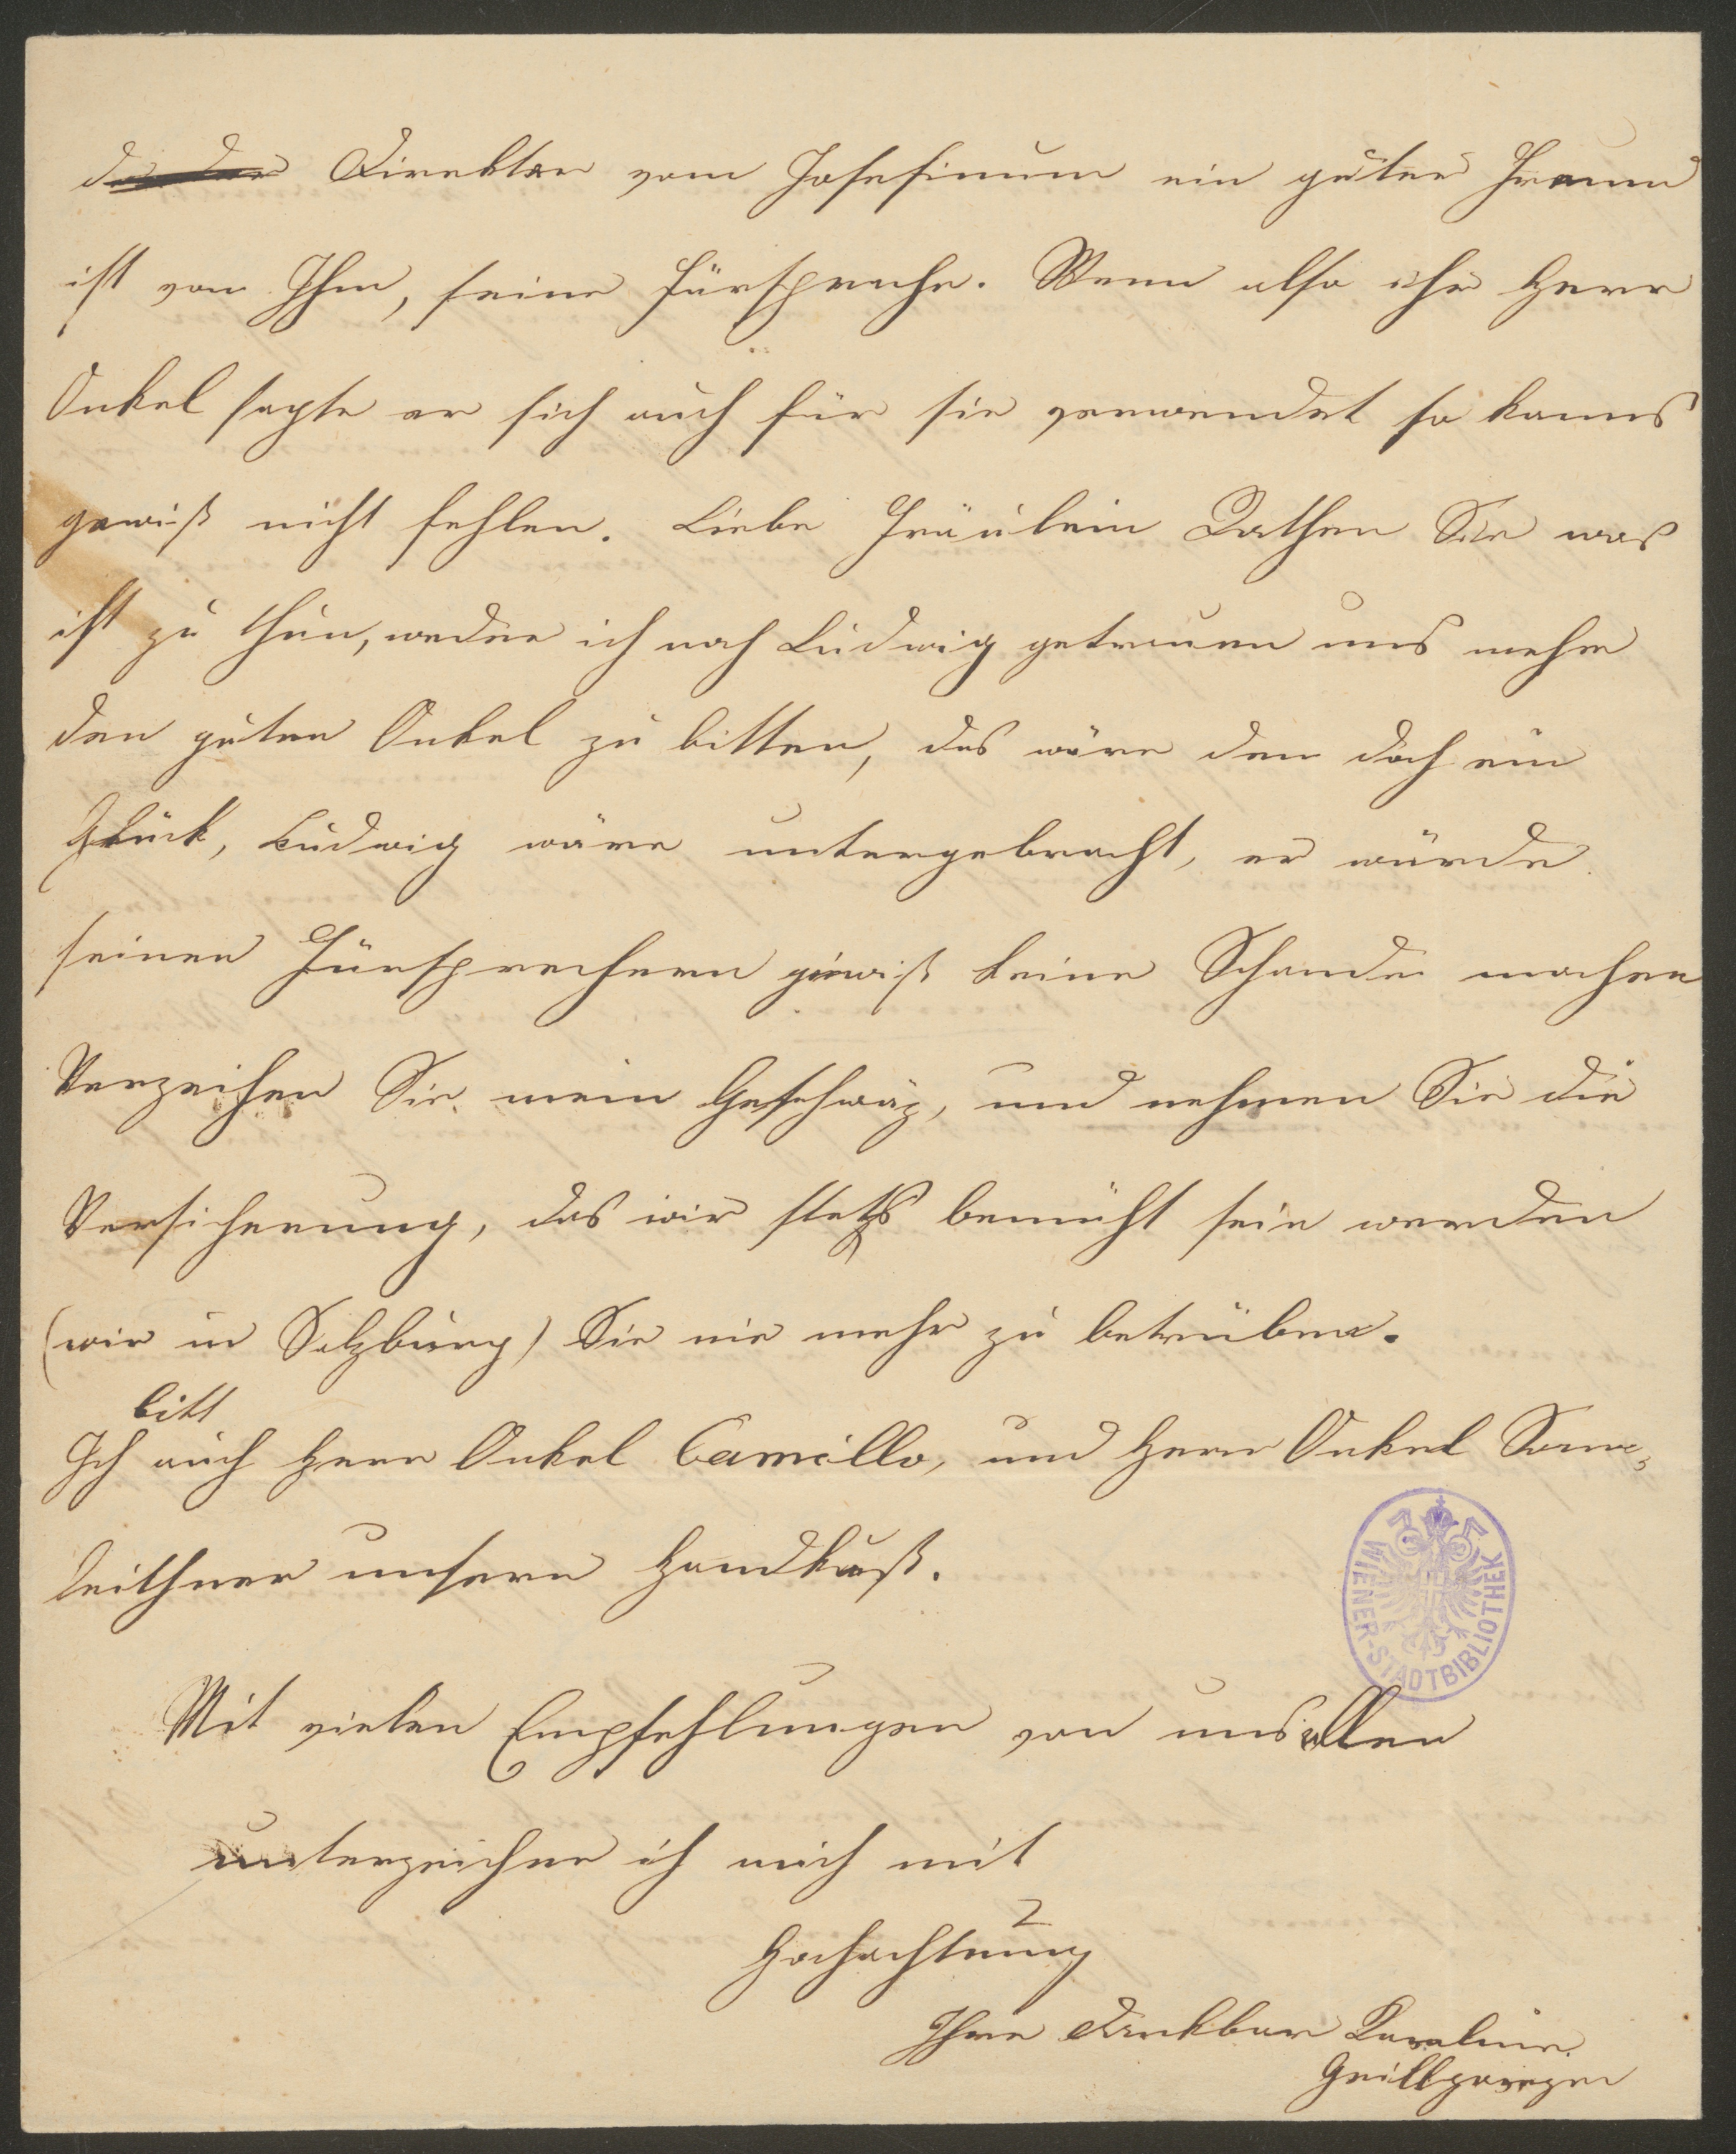 da der Direkter vom Josefinum ein guter Freund
ist von Ihm, seine Fürsprache. Wenn also ihr Herr
Onkel sagte er sich auch für sie verwendet so kanns
gewiß nicht fehlen. Liebe Fräulein Rathen Sie was
ist zu thun, weder ich noch Ludwig getrauen uns mehr
den guten Onkel zu bitten, das wäre den doch ein
Glück, Ludwig wäre untergebracht, er würde
seinen Fürsprechern gewiß keine Schande machen
Verzeihen Sie mein Geschwäz, und nehmen Sie die
Versicherung, das wir stets bemüht sein werden
(wir in Salzburg) Sie nie mehr zu betrüben.
bitt
Ich auch Herr Onkel Camillo, und Herr Onkel Sonn-
leithner unsern Handkuß.
WIENER-STADTBIBLIOTHEK
Mit vielen Empfehlungen von uns allen
unterzeichne ich mich mit
Hochachtung
Ihre dankbare Karoline
Grillparzer